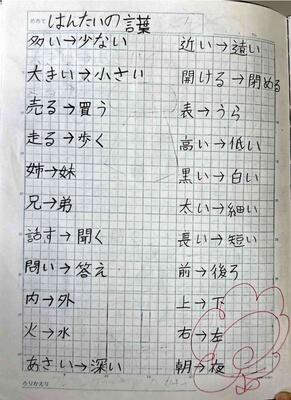 めあて はんたいの言葉
多い→少ない
大きい→小さい
売る→買う
走る→歩く
姉→妹
兄→弟
話す→聞く
問い→答え
内→外
火→水
あさい→深い
近い→遠い
開ける→閉める
表→うら
高い→低い
黒い→白い
太い→細い
長い→短い
前→後ろ
上→下
右→左
朝→夜
ふりかえり